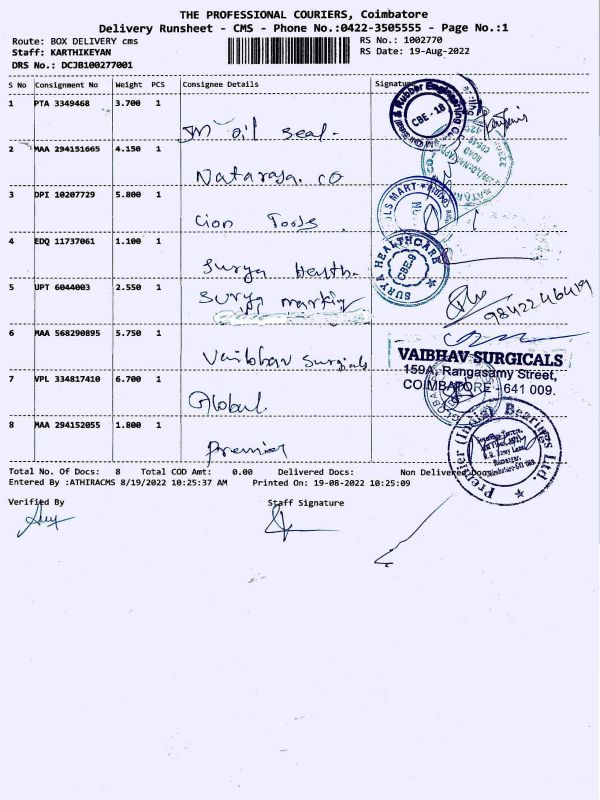 THE PROFESSIONAL COURIERS, Coimbatore
Delivery Runsheet - CMS - Phone No.:0422-3505555 - Page No.:1
Route: BOX DELIVERY cms
RS No.: 1002770
Staff: KARTHIKEYAN
RS Date: 19-Aug-2022
DRS No.: DCJB100277001
S No Consignment No Weight PCS Consignee Details Signature
1 PTA 3349468 3.700 1
JM oil seal.
CBE - 18
2 MAA 294151665 4.150 1
Nataraja. co
3 DPI 10207729 5.800 1
Lion Tools
4 EDQ 11737061 1.100 1
Surya Health.
SURYA HEALTHCARE
CBE-9
5 UPT 6044003 2.550 1
Surya
9842246419
6 MAA 568290895 5.750 1
Vaibhav Surgicals
VAIBHAV SURGICALS
159A, Rangasamy Street,
COIMBATORE - 641 009.
7 VPL 334817410 6.700 1
Global.
8 MAA 294152055 1.800 1
Premier
Premier (India) Bearings Ltd.
Total No. Of Docs: 8 Total COD Amt: 0.00 Delivered Docs: Non Delivered Docs
Entered By :ATHIRACMS 8/19/2022 10:25:37 AM Printed On: 19-08-2022 10:25:09
Verified By
Staff Signature